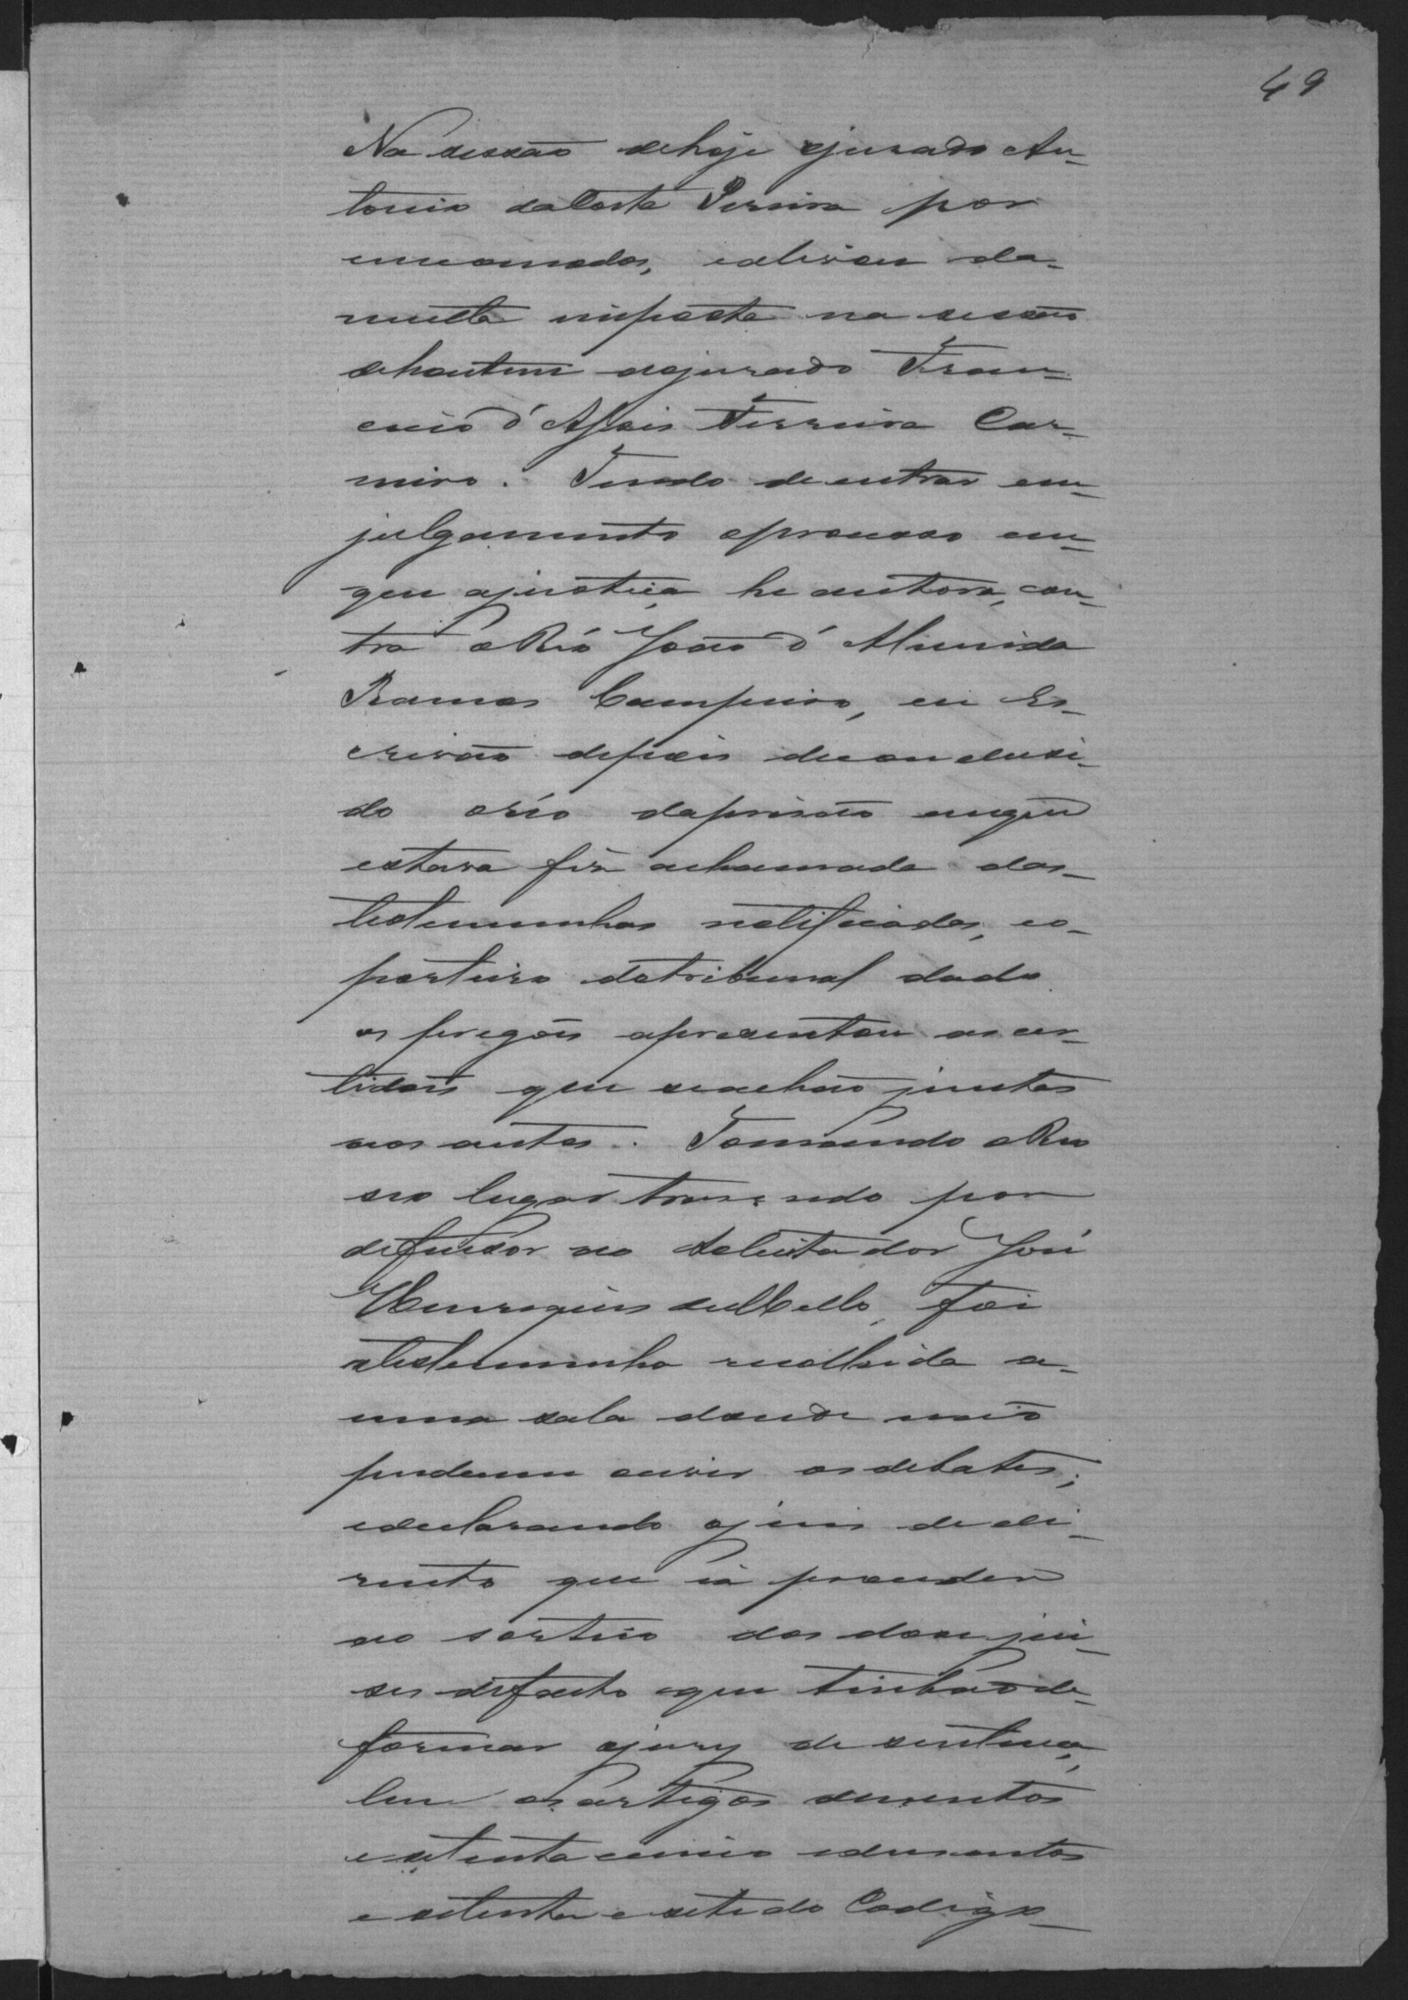 49
Na sessão dehoje ojurado An-
tonio daCosta Pereira por
encomodos, ealiviou da-
multa imposta na sessão
dehontem aojurado Fran-
cisco d'Assis Ferreira Car-
neiro. Tendo deentrar em-
julgamento oprocesso em-
que ajustiça he autora, con-
tra o Réo João d'Almeida
Ramos Campeiro, eu Es-
crivão depois deconduzi-
do oréo daprisão emque
estava fiz achamada das-
testemunhas notificadas, eo-
porteiro dotribunal dado
os pregões apresentou as cer-
tidões que seachão juntas
aos autos. Tomando oReo
seo lugar trasendo por
defensor ao Solicitador José
Henriques deMello, foi
atestemunha recolhida a-
uma sala donde não
podessem ouvir osdebates;
edeclarando ojuis dedi-
reito que ia proceder
ao sorteio dos dose jui-
ses defacto que tinhão de-
formar ojury de sentença,
leu os artigos dusentos
esetenta ecinco edusentos
esetenta e sete do Codigo